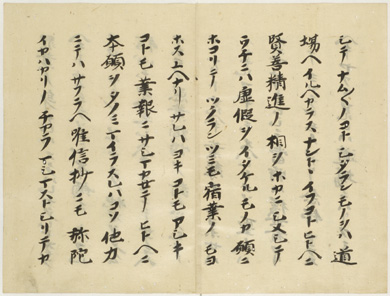 シテナム〱ノコトシタランモノヲハ道
場ヘイルヘカラスナントヽイフコトヒトヘニ
賢善精進ノ相ヲホカニシメシテ
ウチニハ虚假ヲイタケルモノカ願ニ
ホコリテツクランツミモ宿業ノモヨ
ホスユヘナリサレハヨキコトモアシキ
コトモ業報ニサシマカセテヒトヘニ
本願ヲタノミマイラスレハコソ他力
ニテハサフラヘ唯信抄ニモ弥陀
イカハカリノチカラマシマストシリテカ